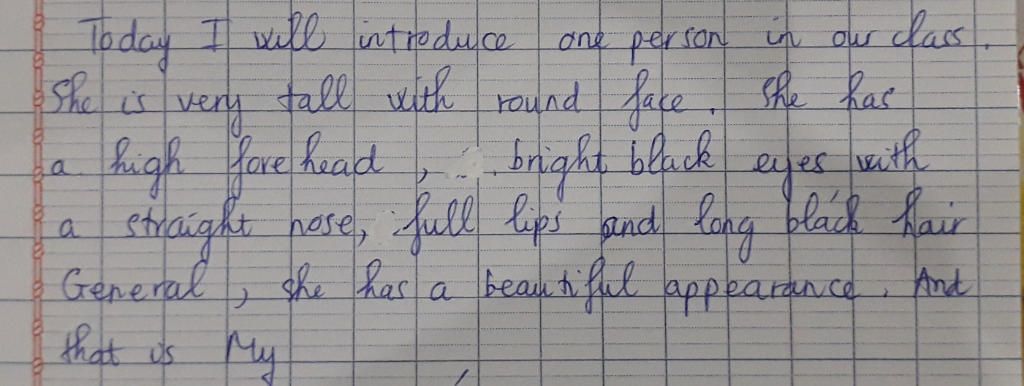 Today I will introduce one person in our class.
She is very tall with round face. She has
a high forehead, bright black eyes with
a straight nose, full lips and long black hair
General, she has a beautiful appearance. And
that is My